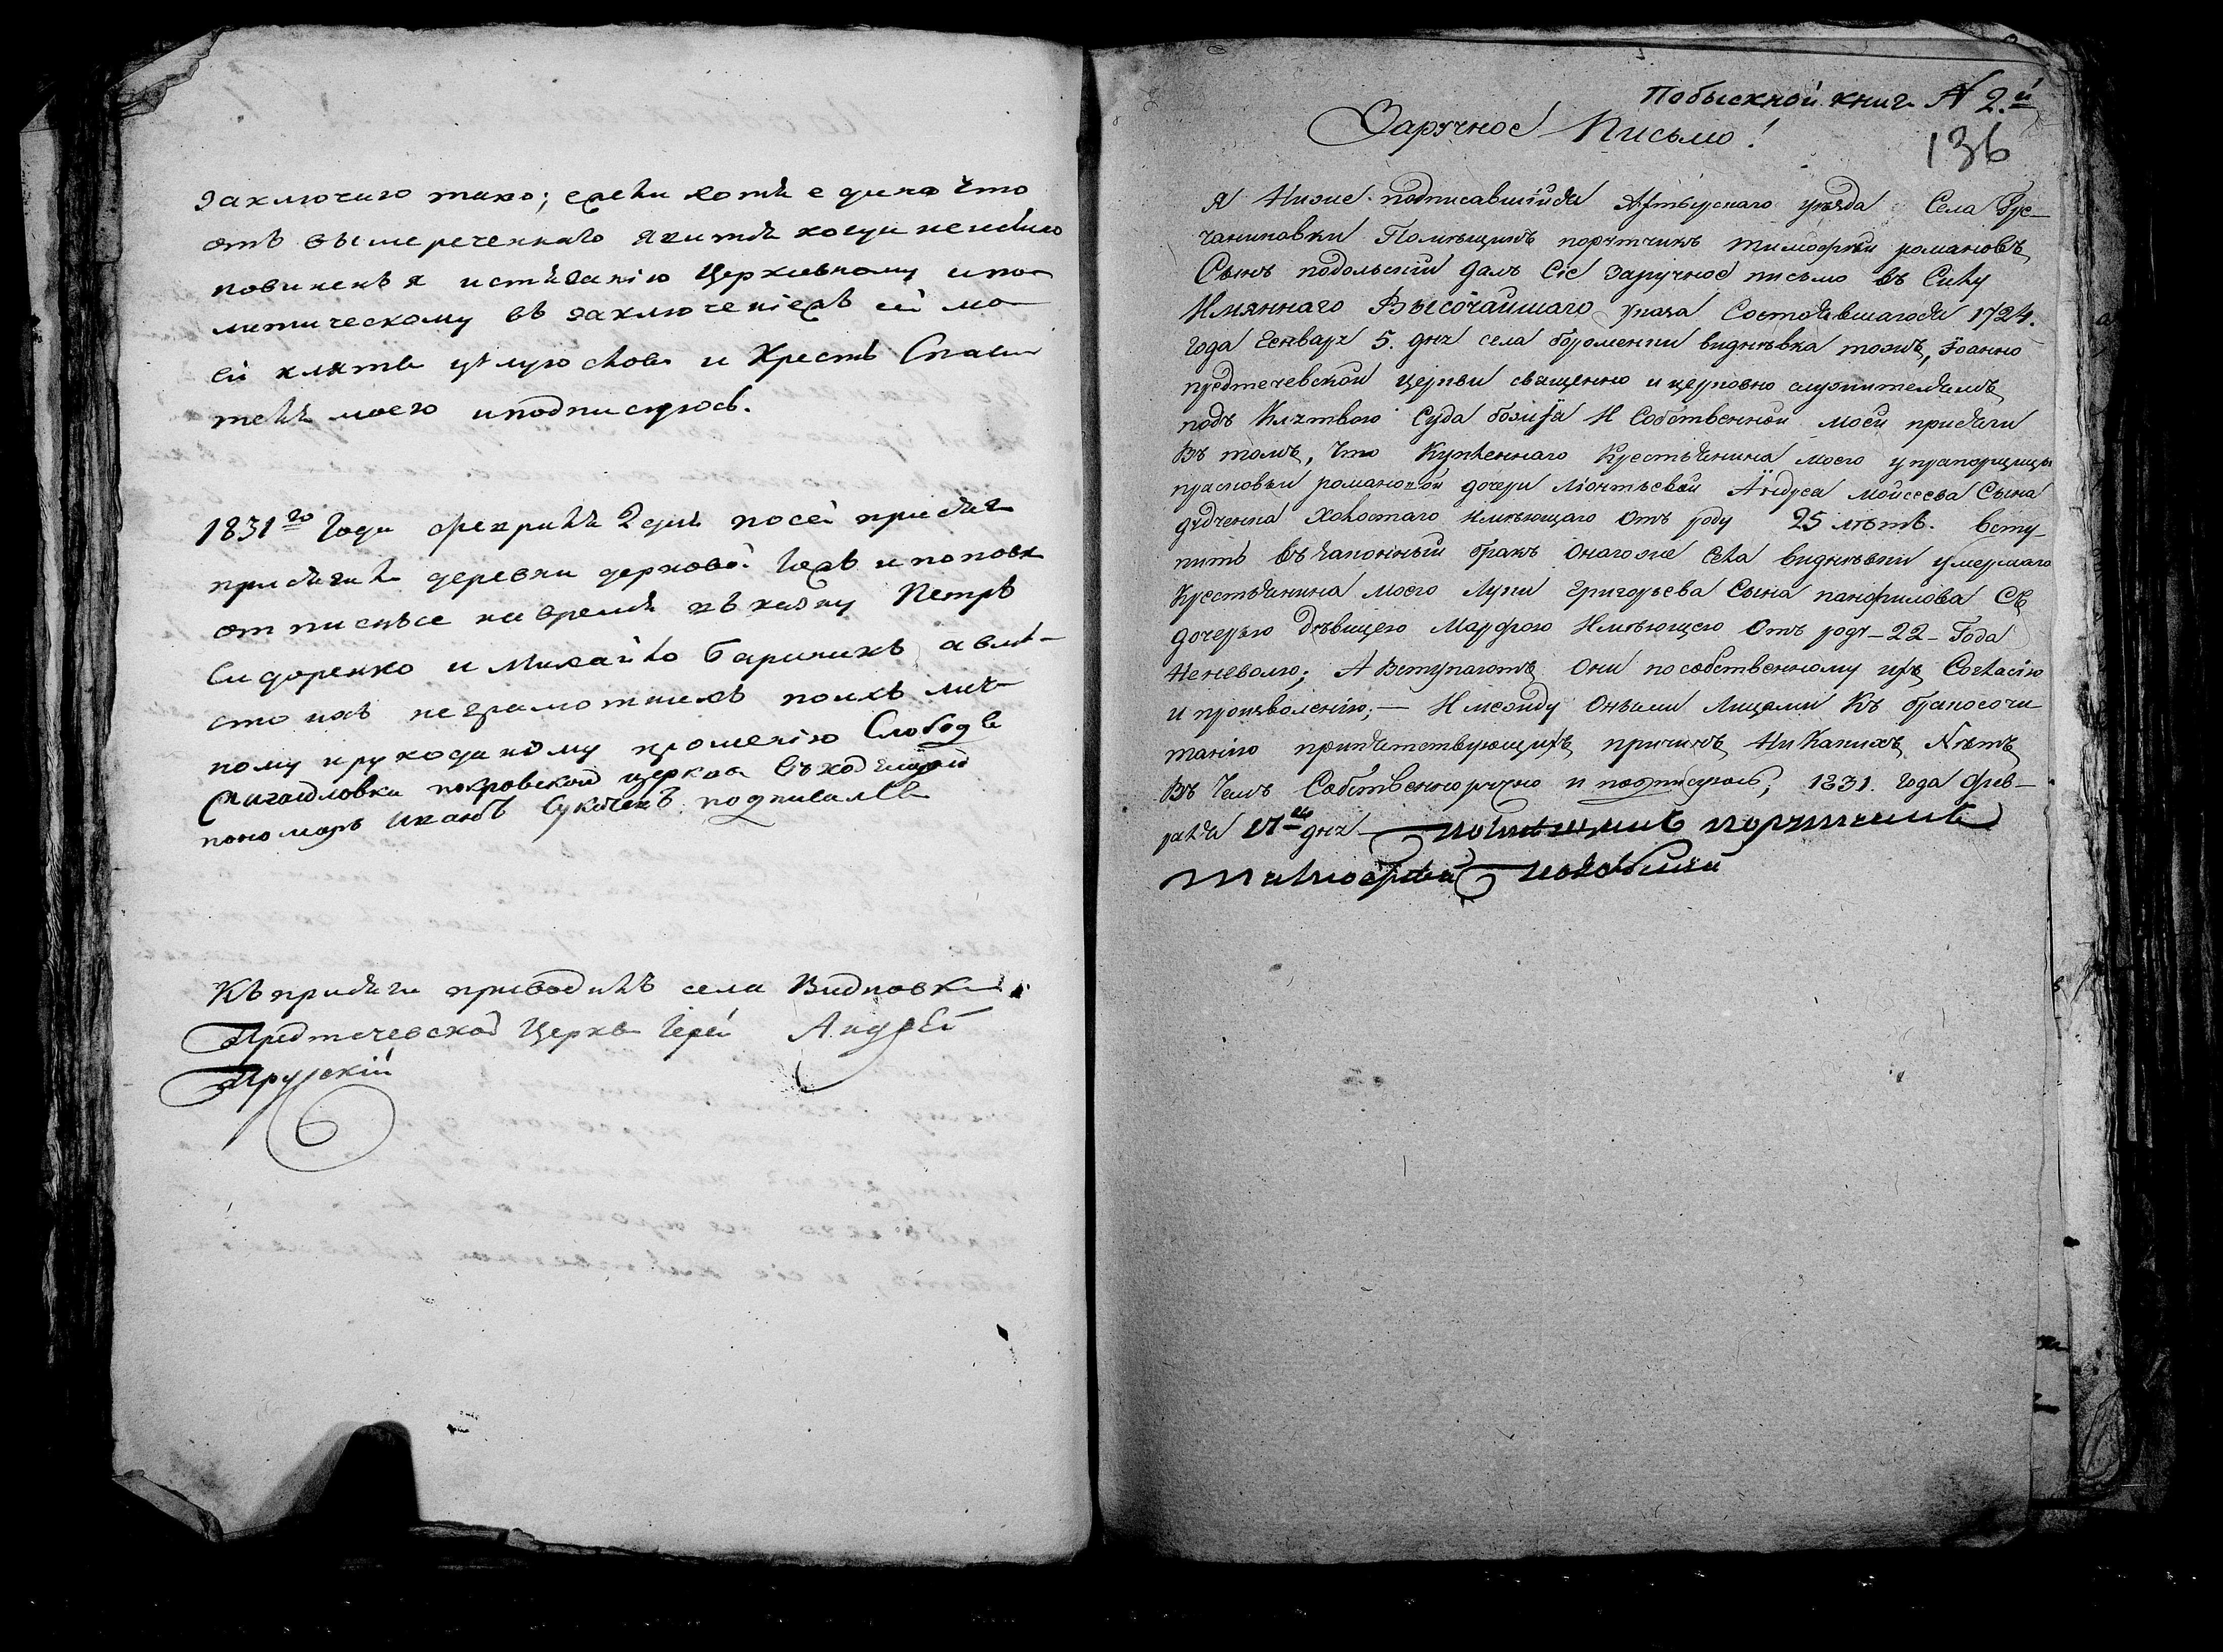 заключаю тако; ежели хотя едино что
отъ вышереченнаго явится когда нибудь
повиненъ я истязанію Церковному и по-
литическому въ заключеніежъ сей мо-
ей клятвы цѣлую слова и Крестъ Спаси
теля моего и подписуюсь.
1831го Года февраля 2 дня по сей присяги
присягали деревни
отписные на время въ казну Петръ
Сидоренко и Михайло Баричикъ а вмѣ-
сто ихъ неграмотныхъ по ихъ лич-
ному и рукоданному прошенію Слободы
покровской церкви
пономарь Иванъ подписался
Къ присяги приводилъ села Видновки
Предтечевской Церкви Іерей Андрей
Прускій
По обыскной книг. N 2.й
Заручное Письмо!
136
Я Ниже подписавшійся Ахтырскаго уѣзда Села Гре-
чаниковки Помѣщикъ порутчикъ тимофѣй романовъ
Сынъ подольскій далъ Сіе заручное письмо въ Силу
Имяннаго Высочайшаго указа Состоявшагося 1724.
года Генваря 5. дня села бороменки виднѣвка тожъ, Іоанно
предтечевской церкви священно и церковно служителямъ
подъ Клятвою Суда божія И Собственной моей присяги
Въ томъ, Что Купленнаго Крестьянина моего у прапорщицы
прасковьи романовой дочери Леонтьевой Сына
дудченка Холостаго имѣющаго Отъ роду 25 лѣтъ. всту-
пить въ законный бракъ Онагоже Села виднѣвки умершаго
Крестьянина моего Луки Григорьева Сына панфилова Съ
дочерью дѣвицею Марфою Имѣющею Отъ роду - 22 - Года
Неневолю; А Вступаютъ Они по собственному ихъ Согласію
и произволенію; — И между Оными Лицами Къ бракосочи
танію препятствующихъ причинъ Ни Какихъ Нѣтъ
Въ Чемъ Собственноручно и подписуюсь, 1831. года фев-
раля 17го дня помѣщикъ порутчикъ
тимофѣй подольскій